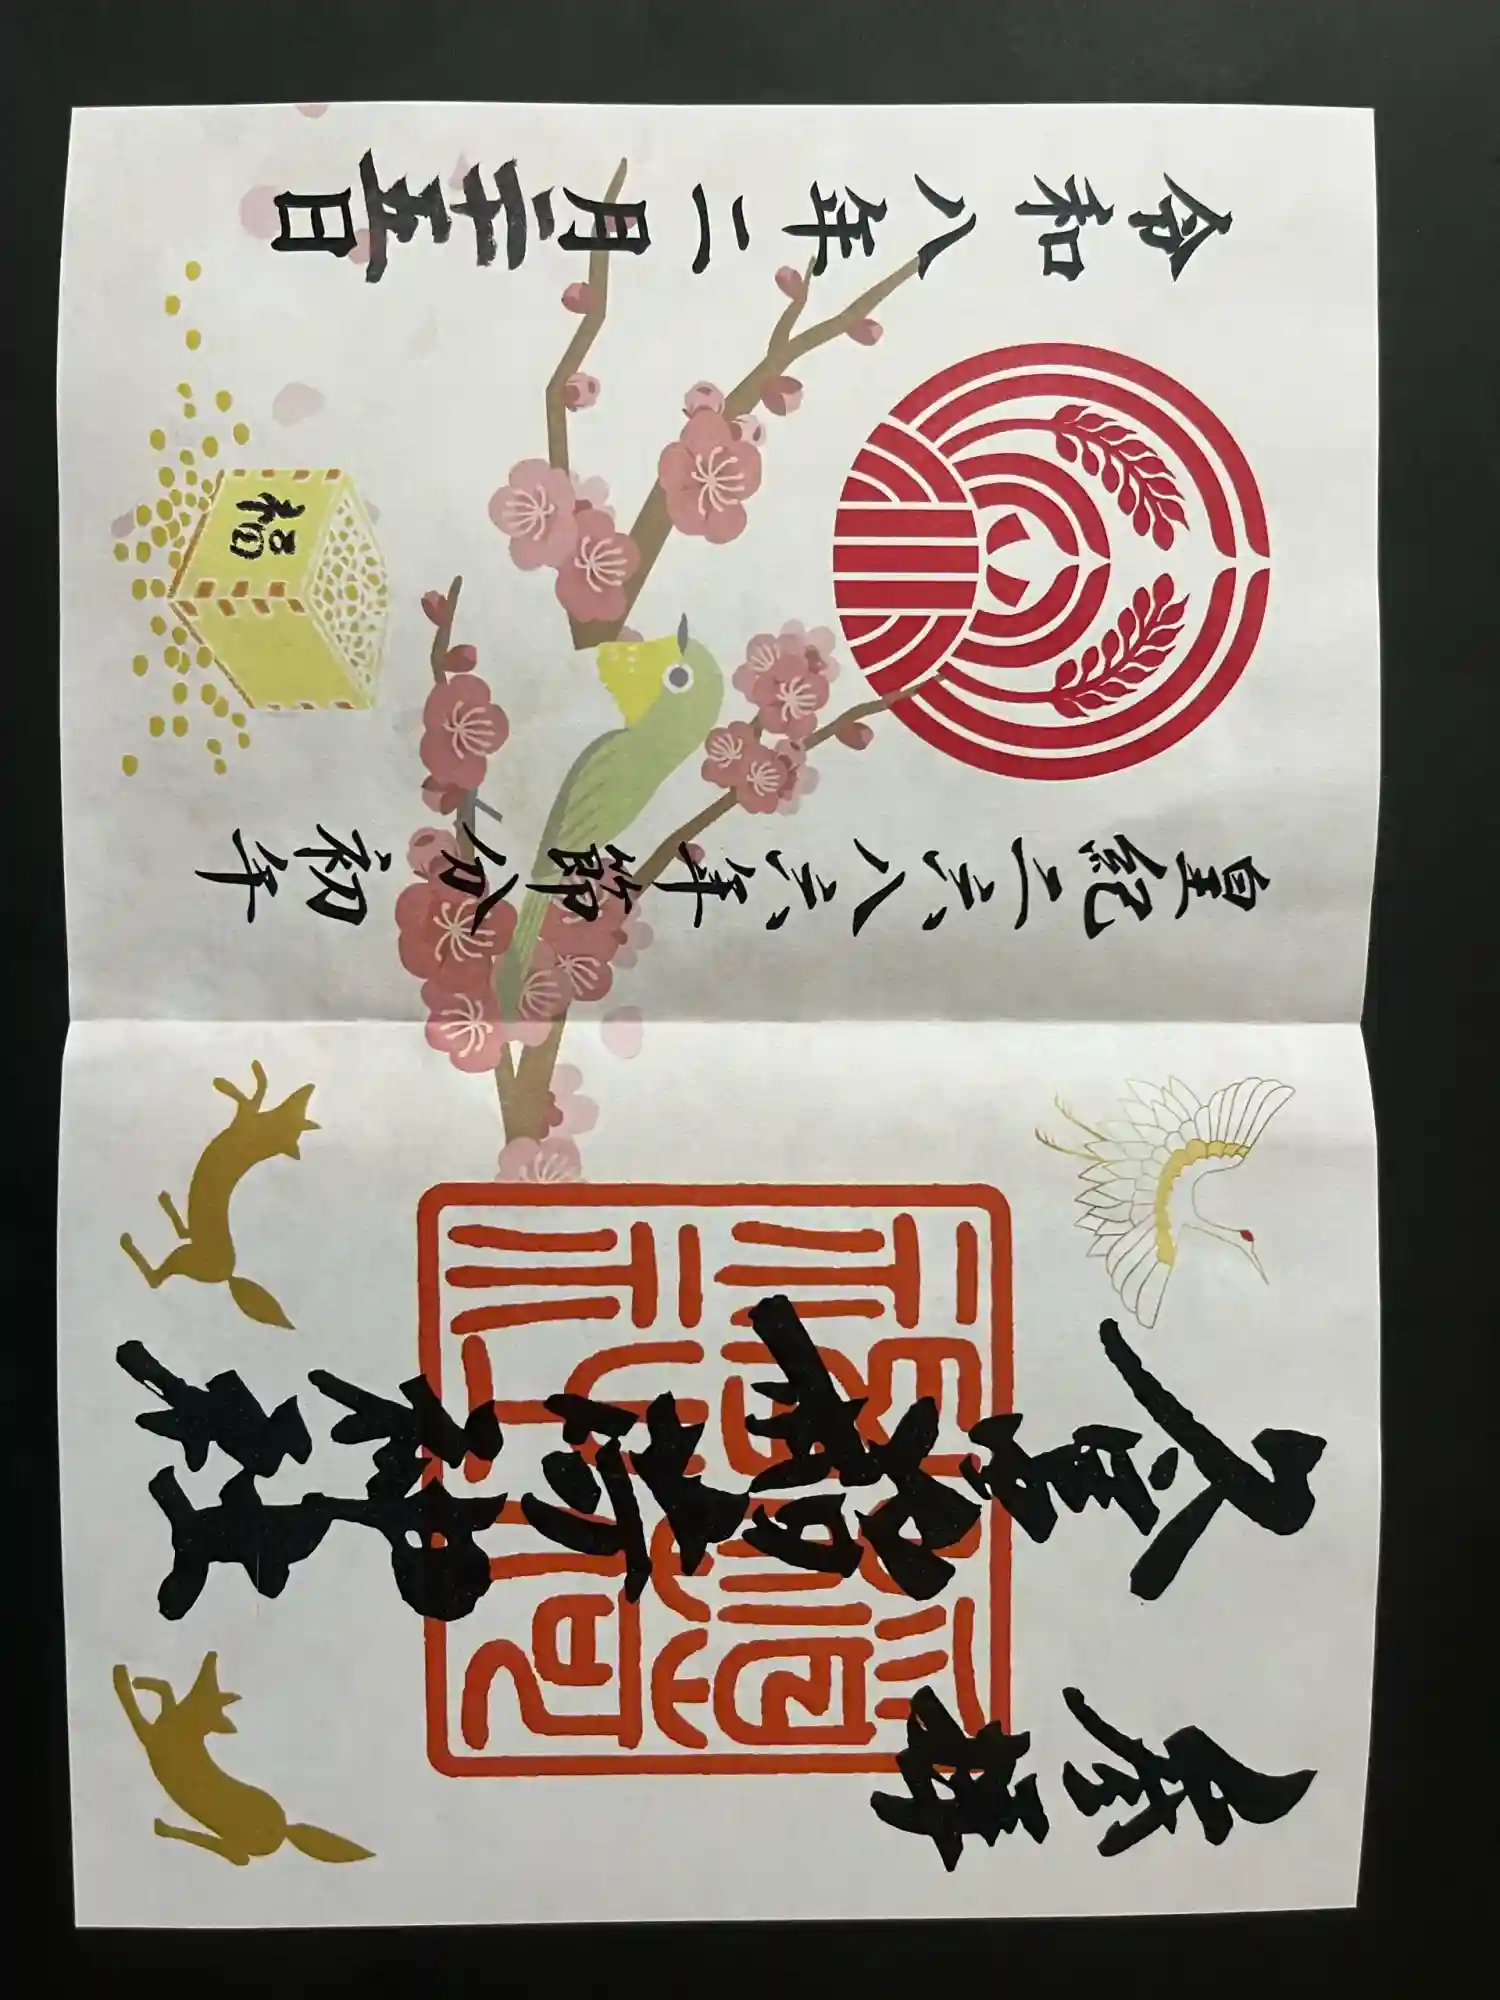 奉拝
久富稲荷神社
皇紀二六八六年 節分 初午
福
令和八年二月二十五日